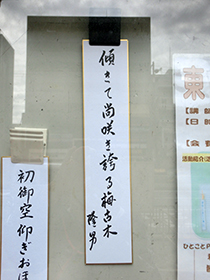 傾きて尚咲き誇る梅古木
隆男
初御空仰ぎおほ
東
【講
【日
【会
活動紹介
ひとことP